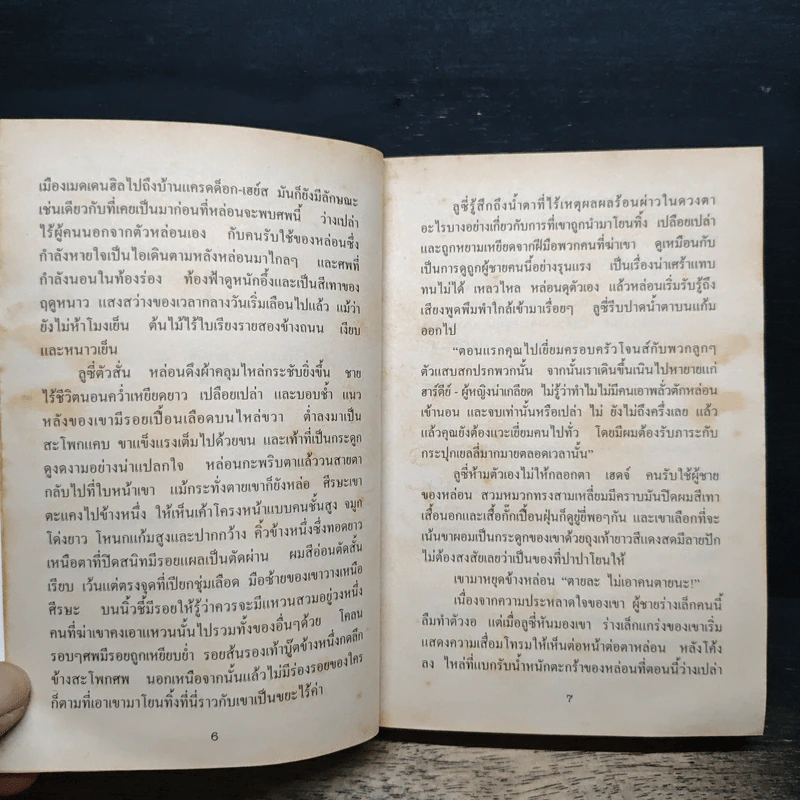 เมืองเมดเดนฮิลไปถึงบ้านแครดด็อก-เฮย์ส มันก็ยังมีลักษณะ
เช่นเดียวกับที่เคยเป็นมาก่อนที่หล่อนจะพบศพนี้ ว่างเปล่า
ไร้ผู้คนนอกจากตัวหล่อนเอง กับคนรับใช้ของหล่อนซึ่ง
กำลังหายใจเป็นไอเดินตามหลังหล่อนมาไกลๆ และศพที่
กำลังนอนในท้องร่อง ท้องฟ้าดูหนักอึ้งและเป็นสีเทาของ
ฤดูหนาว แสงสว่างของเวลากลางวันเริ่มเลือนไปแล้ว แม้ว่า
ยังไม่ห้าโมงเย็น ต้นไม้ไร้ใบเรียงรายสองข้างถนน เงียบ
และหนาวเย็น
ลูซี่ตัวสั่น หล่อนดึงผ้าคลุมไหล่กระชับยิ่งขึ้น ชาย
ไร้ชีวิตนอนคว่ำเหยียดยาว เปลือยเปล่า และบอบช้ำ แนว
หลังของเขามีรอยเปื้อนเลือดบนไหล่ขวา ต่ำลงมาเป็น
สะโพกแคบ ขาแข็งแรงเต็มไปด้วยขน และเท้าที่เป็นกระดูก
ดูงดงามอย่างน่าแปลกใจ หล่อนกะพริบตาแล้ววนสายตา
กลับไปที่ใบหน้าเขา แม้กระทั่งตายเขาก็ยังหล่อ ศีรษะเขา
ตะแคงไปข้างหนึ่ง ให้เห็นเค้าโครงหน้าแบบคนชั้นสูง จมูก
โด่งยาว โหนกแก้มสูงและปากกว้าง คิ้วข้างหนึ่งซึ่งทอดยาว
เหนือตาที่ปิดสนิทมีรอยแผลเป็นตัดผ่าน ผมสีอ่อนตัดสั้น
เรียบ เว้นแต่ตรงจุดที่เปียกชุ่มเลือด มือซ้ายของเขาวางเหนือ
ศีรษะ บนนิ้วชี้มีรอยให้รู้ว่าควรจะมีแหวนสวมอยู่วงหนึ่ง
คนที่ฆ่าเขาคงเอาแหวนนั้นไปรวมทั้งของอื่นๆด้วย โคลน
รอบๆศพมีรอยถูกเหยียบย่ำ รอยส้นรองเท้าบู๊ตข้างหนึ่งกดลึก
ข้างสะโพกศพ นอกเหนือจากนั้นแล้วไม่มีร่องรอยของใคร
ก็ตามที่เอาเขามาโยนทิ้งที่นี่ราวกับเขาเป็นขยะไร้ค่า
6
ลูซี่รู้สึกถึงน้ำตาที่ไร้เหตุผลผลร้อนผ่าวในดวงตา
อะไรบางอย่างเกี่ยวกับการที่เขาถูกนำมาโยนทิ้ง เปลือยเปล่า
และถูกหยามเหยียดจากฝีมือพวกคนที่ฆ่าเขา ดูเหมือนกับ
เป็นการดูถูกผู้ชายคนนี้อย่างรุนแรง เป็นเรื่องน่าเศร้าแทบ
ทนไม่ได้ เหลวไหล หล่อนดุตัวเอง แล้วหล่อนเริ่มรับรู้ถึง
เสียงพูดพึมพำใกล้เข้ามาเรื่อยๆ ลูซี่รีบปาดน้ำตาบนแก้ม
ออกไป
“ตอนแรกคุณไปเยี่ยมครอบครัวโจนส์กับพวกลูกๆ
ตัวแสบสกปรกพวกนั้น จากนั้นเราเดินขึ้นเนินไปหายายแก่
ฮาร์ดีย์ - ผู้หญิงน่าเกลียด ไม่รู้ว่าทำไมไม่มีคนเอาพลั่วตักหล่อน
เข้านอน และจบเท่านั้นหรือเปล่า ไม่ ยังไม่ถึงครึ่งเลย แล้ว
แล้วคุณยังต้องแวะเยี่ยมคนไปทั่ว โดยมีผมต้องรับภาระกับ
กระปุกเยลลี่มากมายตลอดเวลานั้น”
ลูซี่ห้ามตัวเองไม่ให้กลอกตา เฮดจ์ คนรับใช้ผู้ชาย
ของหล่อน สวมหมวกทรงสามเหลี่ยมมีคราบมันปิดผมสีเทา
เสื้อนอกและเสื้อกั๊กเปื้อนฝุ่นก็ดูยู่ยี่พอๆกัน และเขาเลือกที่จะ
เน้นขาผอมเป็นกระดูกของเขาด้วยถุงเท้ายาวสีแดงสดมีลายปัก
ไม่ต้องสงสัยเลยว่าเป็นของที่ปาปาโยนให้
เขามาหยุดข้างหล่อน “ตายละ ไม่เอาคนตายนะ!”
เนื่องจากความประหลาดใจของเขา ผู้ชายร่างเล็กคนนี้
ลืมทำตัวงอ แต่เมื่อลูซี่หันมองเขา ร่างเล็กแกร่งของเขาเริ่ม
แสดงความเสื่อมโทรมให้เห็นต่อหน้าต่อตาหล่อน หลังโค้ง
ลง ไหล่ที่แบกรับน้ำหนักตะกร้าของหล่อนที่ตอนนี้ว่างเปล่า
7